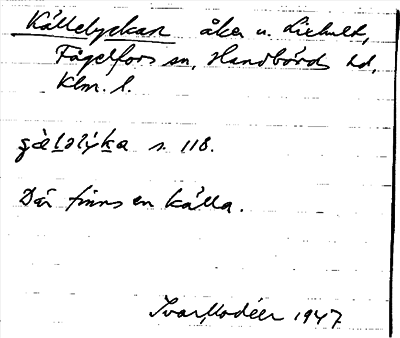 Källelyckan åker u. Liehult,
Fågelfors sn, Handbörds hd,
Klm. l.
s. 118.
Där finns en källa.
Ivar Modéer 1947